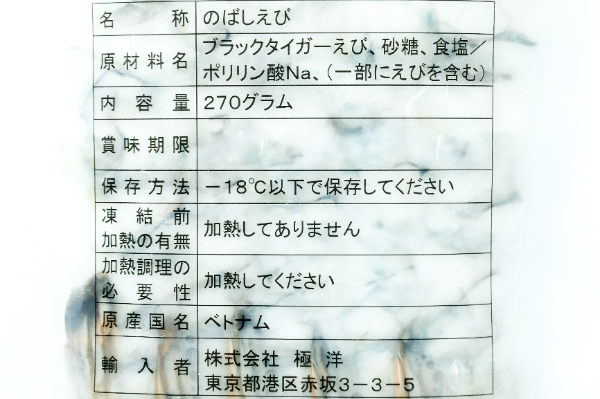 名称 のばしえび
原材料名 ブラックタイガーえび、砂糖、食塩／
ポリリン酸Na、（一部にえびを含む）
内容量 270グラム
賞味期限
保存方法 －18℃以下で保存してください
凍結前
加熱の有無 加熱してありません
加熱調理の
必要性 加熱してください
原産国名 ベトナム
輸入者 株式会社 極洋
東京都港区赤坂3－3－5